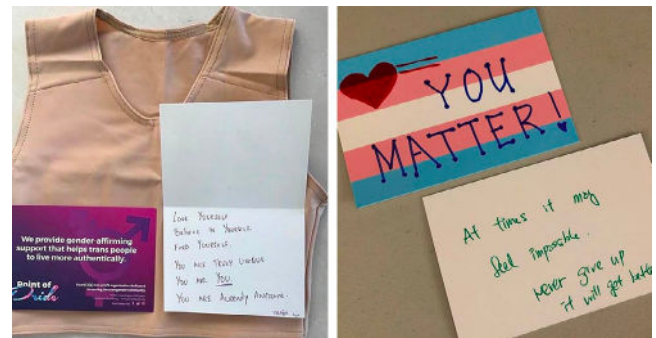 We provide gender-affirming
support that helps trans people
to live more authentically.
Point of
Pride
LOVE YOURSELF
BELIEVE IN YOURSELF
FIND YOURSELF.
YOU ARE TRULY UNIQUE
YOU ARE YOU.
YOU ARE ALREADY AWESOME.
YOU
MATTER!
At times it may
feel impossible.
Never give up
it will get better